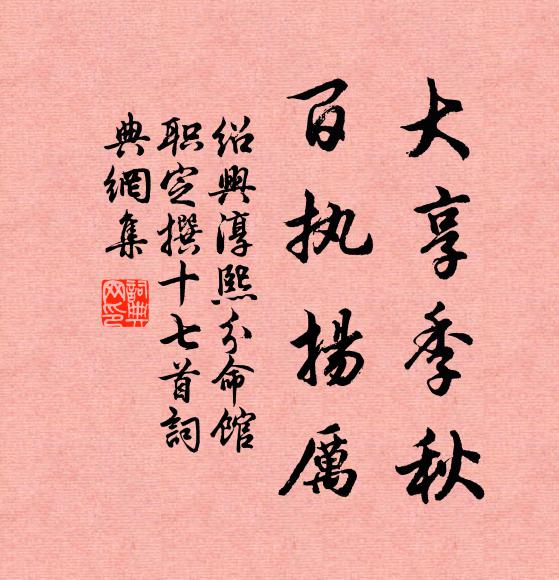 大享季秋
百执揚厲
绍興淳熙分命馆
职定撰十七首詞
典網集
詞典
网印